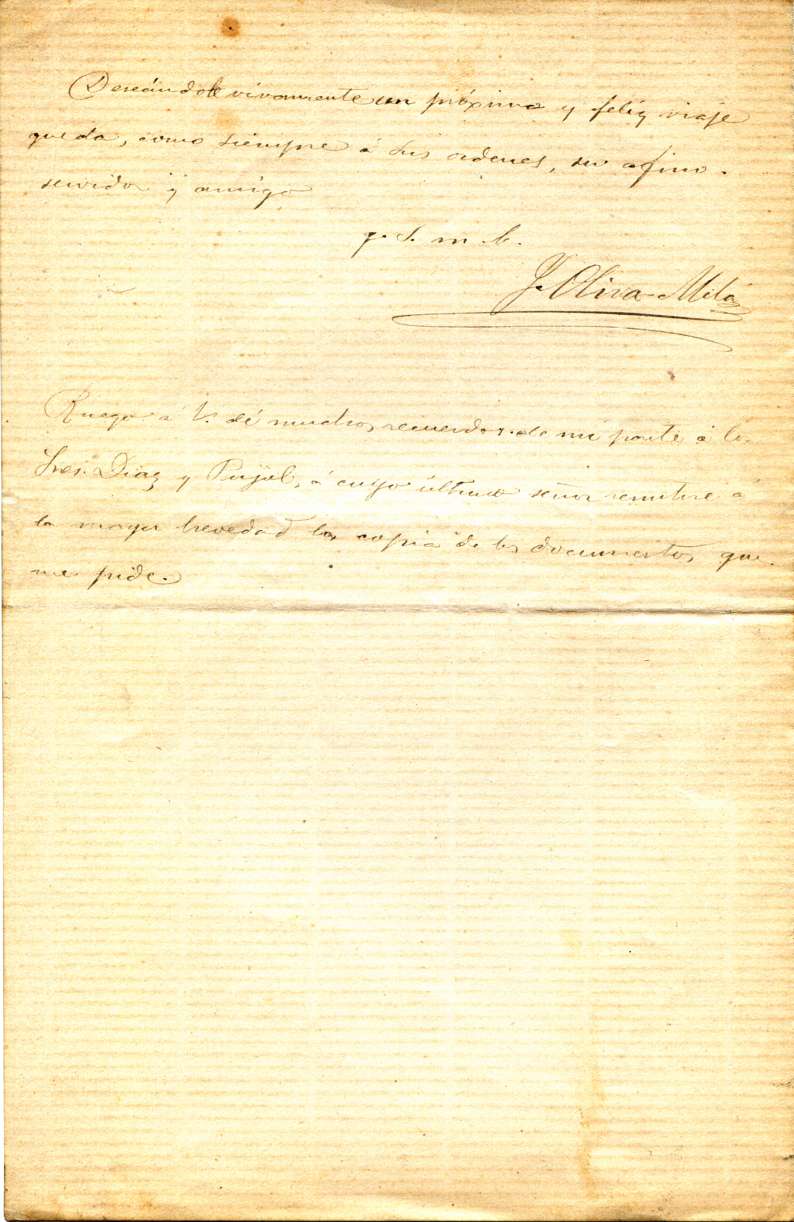 Deseándole vivamente un próximo y feliz viaje
queda, como siempre á sus ordenes, su afmo.
servidor y amigo
q. s. m. b.
J. Oliva Milá
Ruego á V. dé muchos recuerdos de mi parte á los
Sres. Diaz y Pujol, á cuyo último señor remitire á
la mayor brevedad la copia de los documentos que
me pide.